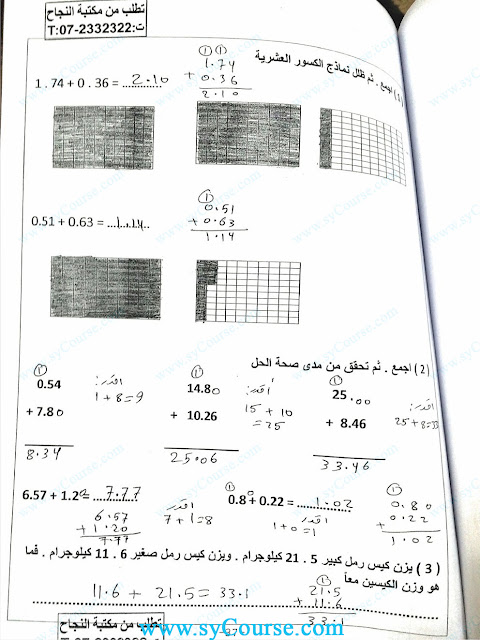 تطلب من مكتبة النجاح
ت:07-2332322:T
(1) اجمع . ثم ظلل نماذج الكسور العشرية
1 1
1.74
+ 0.36
2.10
1 . 74 + 0 . 36 = 2.10
1
0.51
+ 0.63
1.14
0.51 + 0.63 = 1.14
(2) اجمع . ثم تحقق من مدى صحة الحل
1
25.00
+ 8.46
33.46
اقدر:
25+8=33
1
14.80
+ 10.26
25.06
اقدر:
15 + 10
= 25
1
0.54
+ 7.80
8.34
اقدر:
1+8=9
0.80 + 0.22 = 1.02
1
0.80
0.22
+
1.02
اقدر
1+0=1
6.57 + 1.20 = 7.77
6.57
+ 1.20
7.77
اقدر
7+1=8
( 3 ) يزن كيس رمل كبير 5 . 21 كيلوجرام . ويزن كيس رمل صغير 6 . 11 كيلوجرام . فما
هو وزن الكيسين معاً
11.6 + 21.5 = 33.1
1
21.5
+ 11.6
33.1
تطلب من مكتبة النجاح
www.syCourse.com